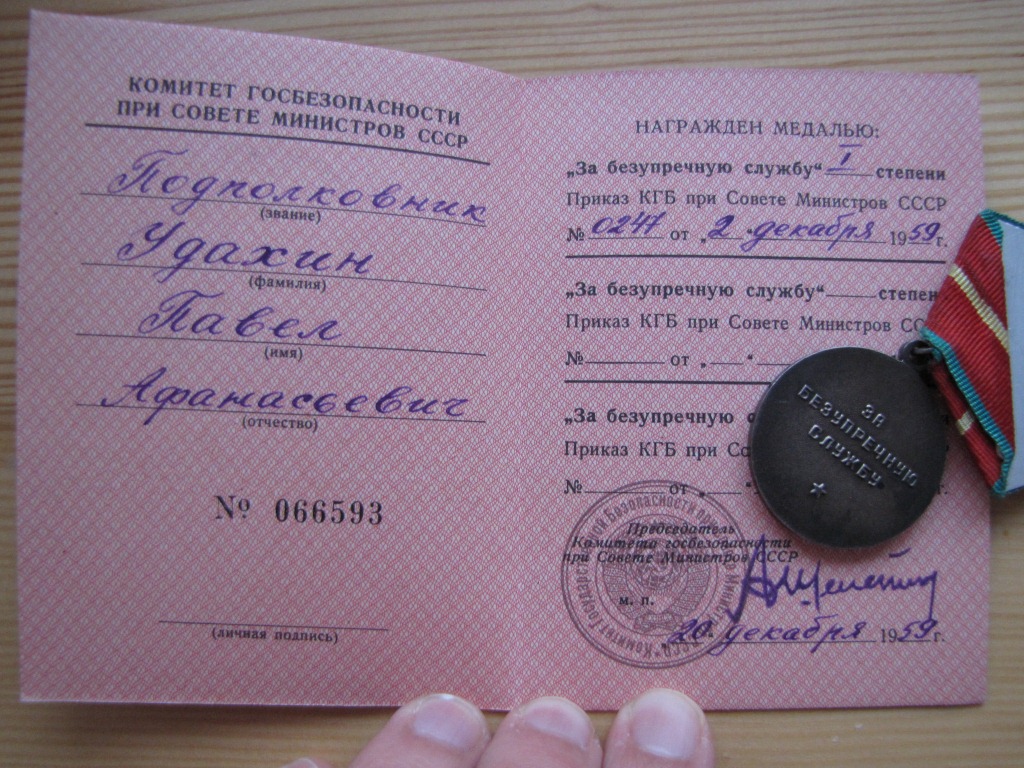 КОМИТЕТ ГОСБЕЗОПАСНОСТИ
ПРИ СОВЕТЕ МИНИСТРОВ СССР
Подполковник
(звание)
Удахин
(фамилия)
Павел
(имя)
Афанасьевич
(отчество)
№ 066593
(личная подпись)
НАГРАЖДЕН МЕДАЛЬЮ:
„За безупречную службу“ I степени
Приказ КГБ при Совете Министров СССР
№ 0247 от „2“ декабря 1959 г.
„За безупречную службу“ степени
Приказ КГБ при Совете Министров
№ от „ “
„За безупречную
Приказ КГБ при
№ от „ “ г.
Председатель
Комитета госбезопасности
при Совете Министров СССР
м. п.
„20“ декабря 1959 г.
ЗА
БЕЗУПРЕЧНУЮ
СЛУЖБУ